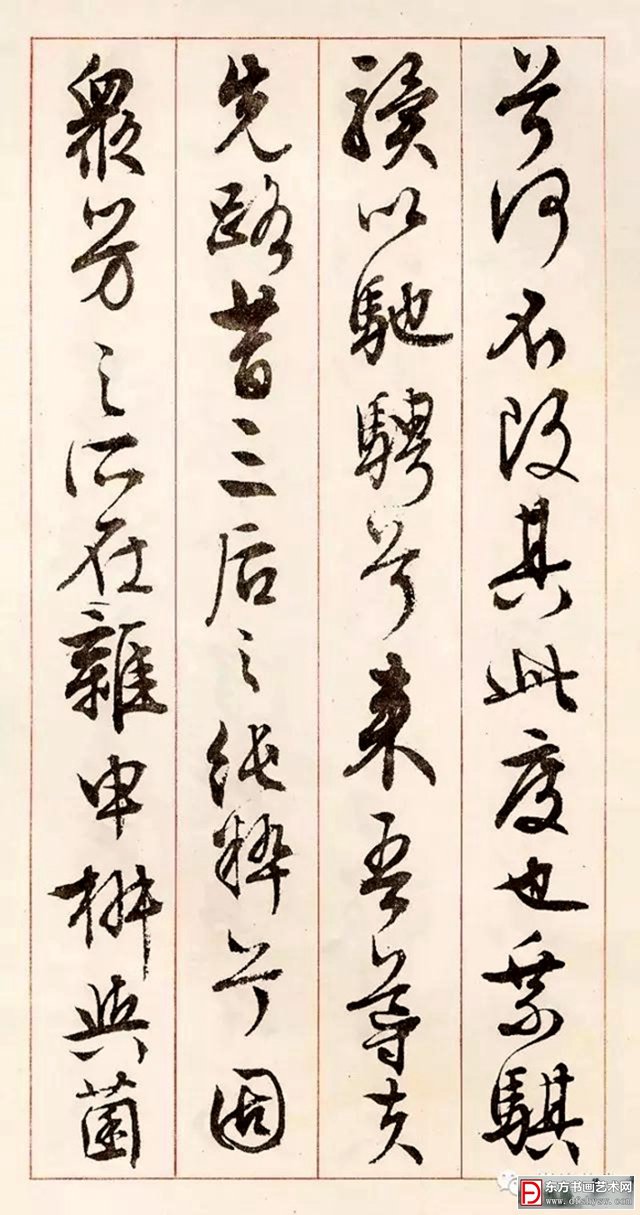 兮何不改其此度也乘騏
驥以馳騁兮来吾導夫
先路昔三后之純粹兮固
衆芳之所在雜申椒與菌
东方书画艺术网
www.dfshysw.com